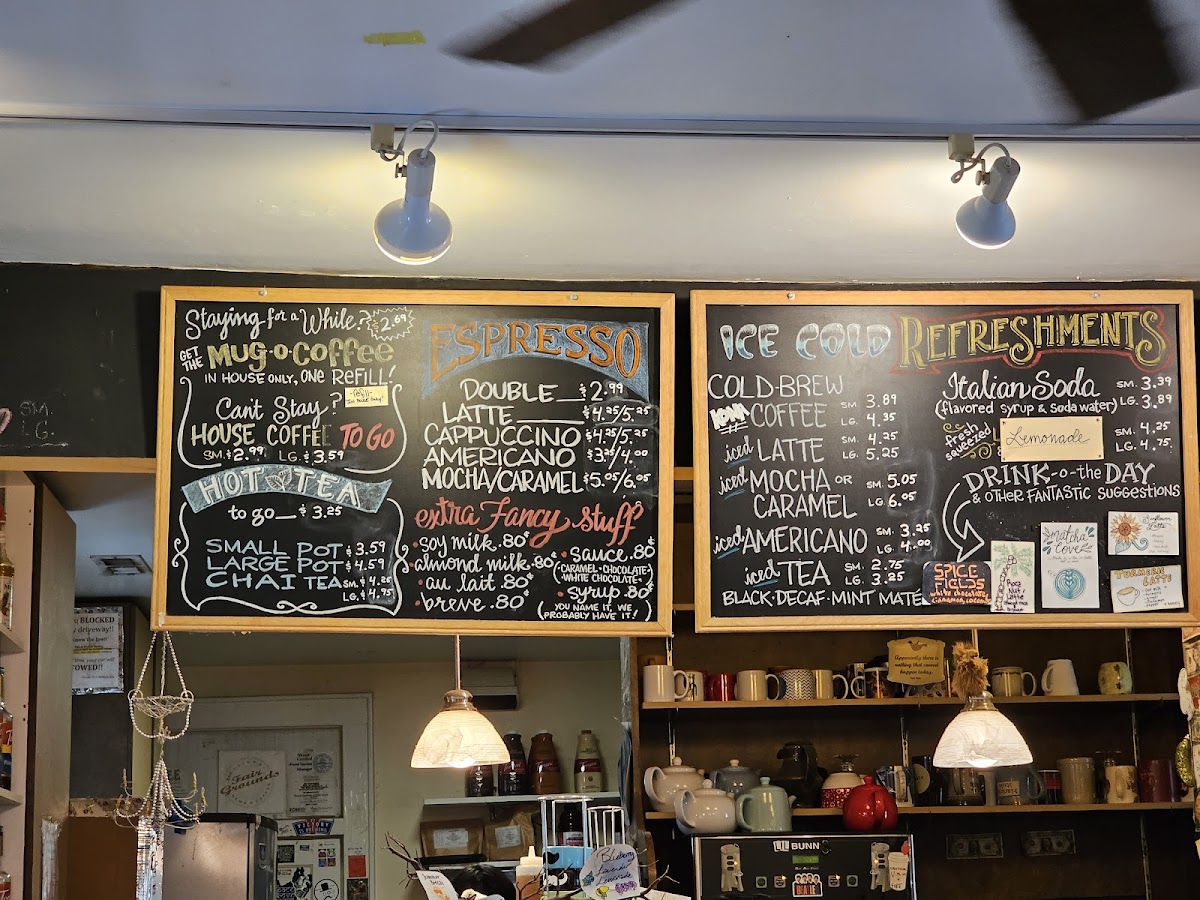 Staying for a While? $2.69
GET THE MUG-O-COFFEE
IN HOUSE ONLY, ONE REFILL!
-Refill-
Can't Stay?
HOUSE COFFEE TO GO
SM. $2.99 LG. $3.59
HOT TEA
to go $3.25
SMALL POT $3.59
LARGE POT $4.59
CHAI TEA SM. $4.25
LG. $4.75
ESPRESSO
DOUBLE $2.99
LATTE $4.25/5.25
CAPPUCCINO $4.25/5.25
AMERICANO $3.25/4.00
MOCHA/CARAMEL $5.05/6.05
extra Fancy stuff
• soy milk .80¢
• almond milk .80¢
• au lait .80¢
• breve .80¢
• sauce .80¢
(CARAMEL • CHOCOLATE • WHITE CHOCOLATE •
• syrup .80¢
(YOU NAME IT, WE PROBABLY HAVE IT!
ICE COLD REFRESHMENTS
COLD-BREW
COFFEE SM. 3.89
LG. 4.35
iced LATTE SM. 4.25
LG. 5.25
iced MOCHA OR CARAMEL SM. 5.05
LG. 6.05
iced AMERICANO SM. 3.25
LG. 4.00
iced TEA SM. 2.75
LG. 3.25
BLACK • DECAF • MINT MATÉ
Italian Soda SM. 3.39
(flavored syrup & soda water) LG. 3.89
fresh squeezed Lemonade SM. 4.25
LG. 4.75
DRINK-o-the DAY
& OTHER FANTASTIC SUGGESTIONS
SPICE
white chocolate,
matcha
Cove
Sunflower
Latte
TURMERIC LATTE
SM.
LG.
BLOCKED
TOWED!!
Fair Grounds
BUNN
Blueberry
Lavender
Lemonade
Apparently there is
nothing that cannot
happen today.